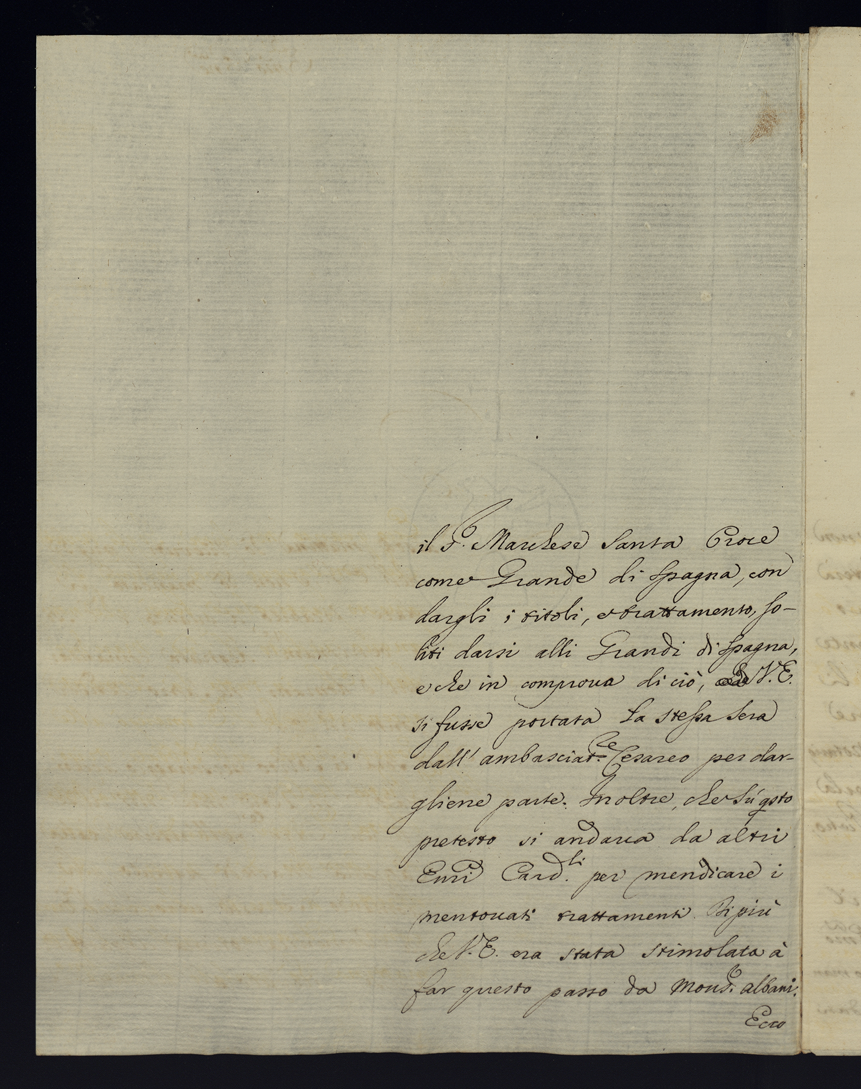 il S.e Marchese Santa Croce
come Grande di Spagna, con
dargli i titoli, e trattamento, so-
liti darsi alli Grandi di Spagna,
e che in comprova di ciò, V. E.
si fusse portata la stessa sera
dall' ambasciat.re Cesareo per dar-
gliene parte. Inoltre, che sù q̃sto
pretesto si andava da altri
Em̃i Card.li per mendicare i
mentovati trattamenti Di più
che V. E. era stata stimolata à
far questo passo da Mons.e Albani.
Ecco